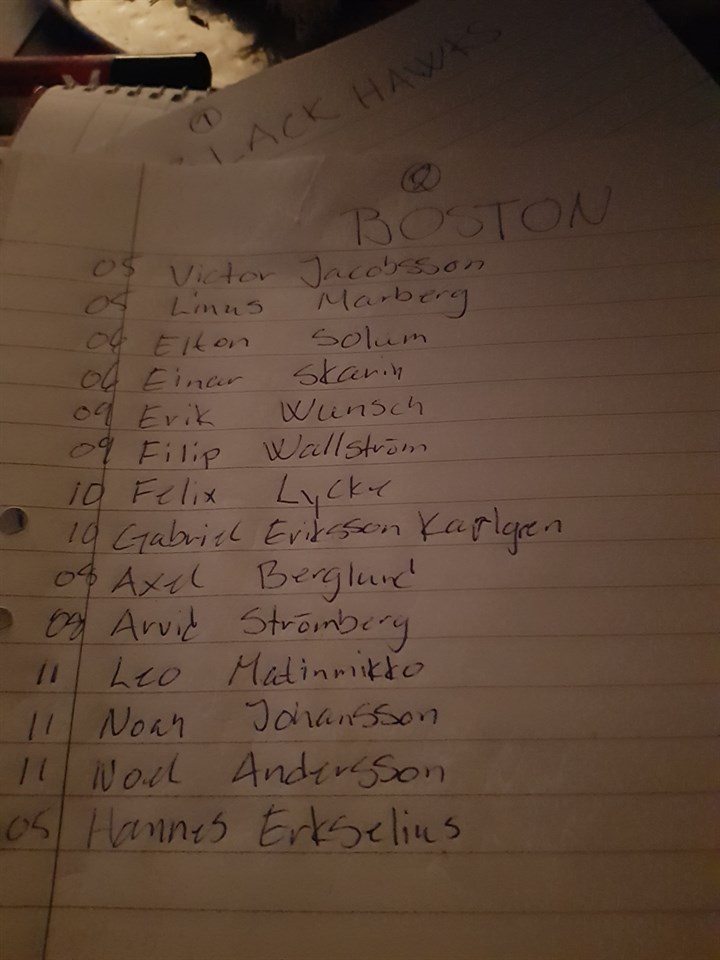 ①
LACK HAWKS
②
BOSTON
05 Victor Jacobsson
05 Linus Marberg
06 Elton Solum
06 Einar Skarin
09 Erik Wunsch
09 Filip Wallström
10 Felix Lycke
10 Gabriel Eriksson Karlgren
08 Axel Berglund
08 Arvid Strömberg
11 Leo Matinmikko
11 Noah Johansson
11 Noel Andersson
05 Hannes Erkselius